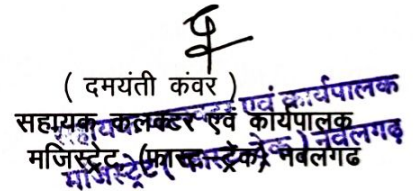 ( दमयंती कंवर )
सहायक कलक्टर एवं कार्यपालक
मजिस्ट्रेट (फास्ट ट्रेक) नवलगढ
एवं कार्यपालक
मजिस्ट्रेट नवलगढ़